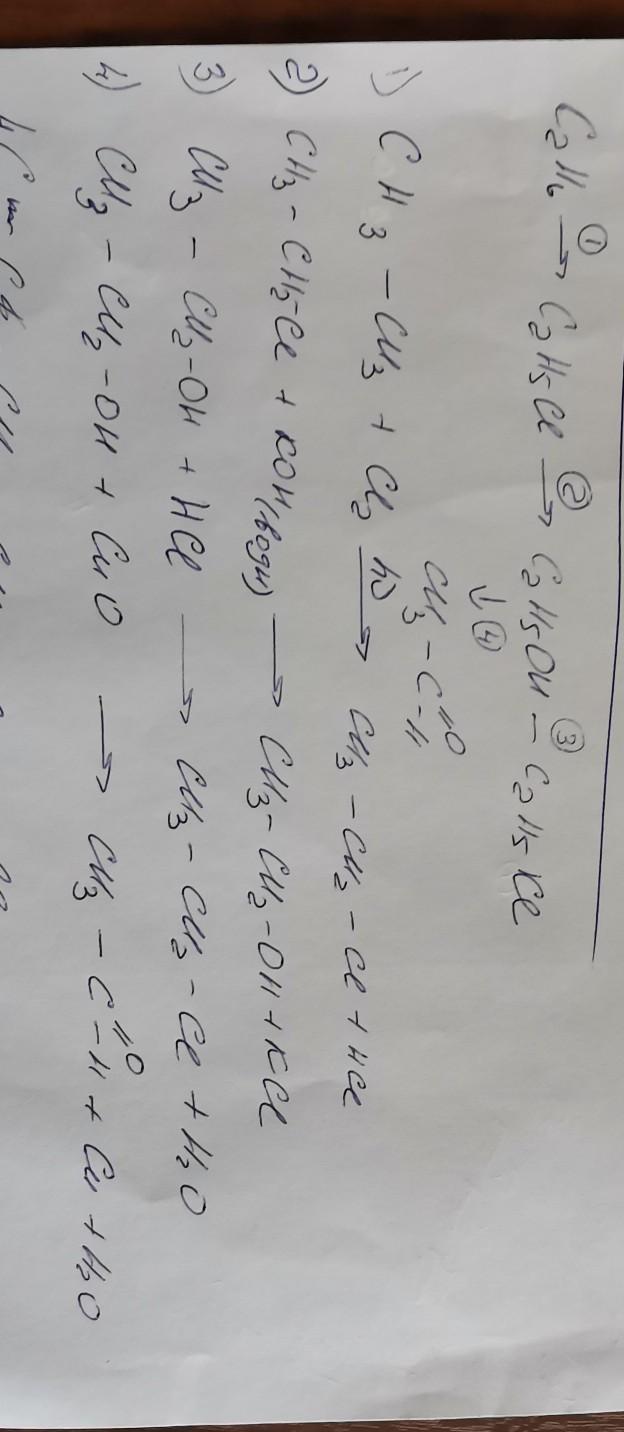 C₂H₆ →① C₂H₅Cl →② C₂H₅OH –③ C₂H₅Cl
↓④
CH₃ – C =O –H
1) CH₃ – CH₃ + Cl₂ →hν CH₃ – CH₂ – Cl + HCl
2) CH₃ – CH₂Cl + KOH(водн) → CH₃ – CH₂ – OH + KCl
3) CH₃ – CH₂–OH + HCl → CH₃ – CH₂ – Cl + H₂O
4) CH₃ – CH₂–OH + CuO → CH₃ – C =O –H + Cu + H₂O